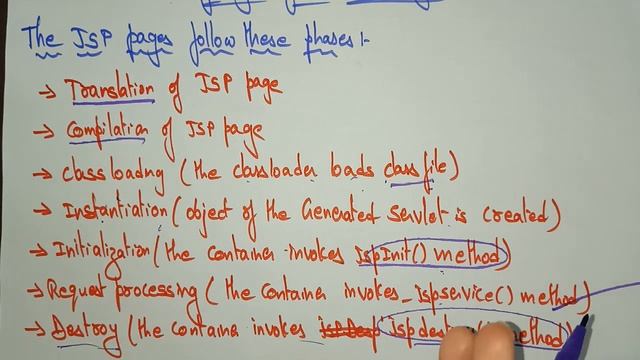 The JSP pages follow these phases:-
→ Translation of JSP page
→ Compilation of JSP page
→ classloading (the classloader loads class file)
→ Instantiation (object of the Generated Servlet is created)
→ Initialization (the container invokes JspInit() method)
→ Request processing (the container invokes _jspservice() method)
→ Destroy (the container invokes method)